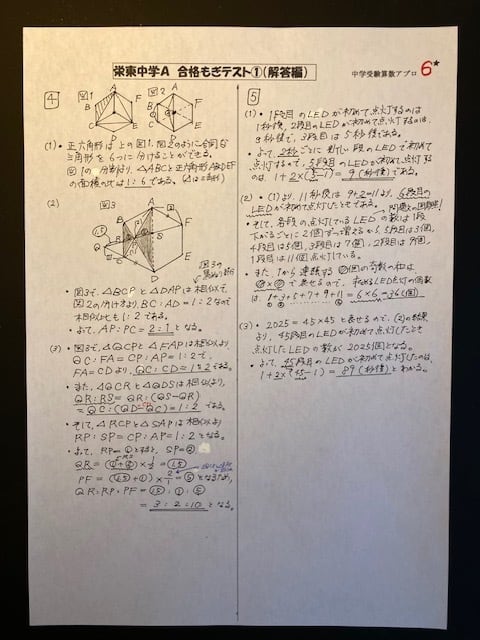 栄東中学A 合格もぎテスト①(解答編)
中学受験算数アプロ 6*
4
図1 A F B E C D
図2 A F B E C D
(1)・正六角形は上の図1、図2のように合同な
三角形を6つに分けることができる。
図1の分割より、△ABCと正六角形ABCDEF
の面積の比は1:6である。(△は三角形)
(2)
図3
図3の
・図3で、△BCPと△DAPは相似で、
図2の分け方より、BC:AD=1:2なので
相似比も1:2である。
・よって、AP:PC=2:1となる。
(3)・図3で、△QCPと△FAPは相似で
QC:FA=CP:AP=1:2で、
FA=CDより、QC:CD=1:2である。
・また、△QCRと△QDSは相似より、
QR:RS=QR:(QS-QR)
=QC:(QD-QC)=1:2である。
・そして、△RCPと△SAPは相似より
RP:SP=CP:AP=1:2となる。
・よって、RP=①とすると、SP=②
QR=(①+②)×1/2=①.5
PF=(①.5+①)×2/1=⑤となるため、
QR:RP:PF=①.5:①:⑤
=3:2:10となる。
5
(1)・1段目のLEDが初めて点灯するのは
1秒後、2段目のLEDが初めて点灯するのは、
3秒後で、3段目は5秒後である。
・よって、2秒ごとに新しい段のLEDで初めて
点灯するので、5段目のLEDが初めて点灯する
のは、1+2×(5-1)=9(秒後)である。
(2)・(1)より、11秒後は9+2=11より、6段目の
LEDが初めて点灯したときである。
・そして、各段の点灯しているLEDの数は1段
下がるごとに2個ずつ増えるから、5段目は3個、
4段目は5個、3段目は7個、2段目は9個、
1段目は11個点灯している。
・また、1から連続する◯個の奇数の和は
◯×◯で表せるので、求めるLED点灯の個数
は、1+3+5+7+9+11=6×6=36(個)
(3)・2025=45×45と表せるので、(2)の結果
より、45段目のLEDが初めて点灯したとき
点灯したLEDの数が2025個となる。
・よって、45段目のLEDが初めて点灯したのは、
1+2×(45-1)=89(秒後)とわかる。